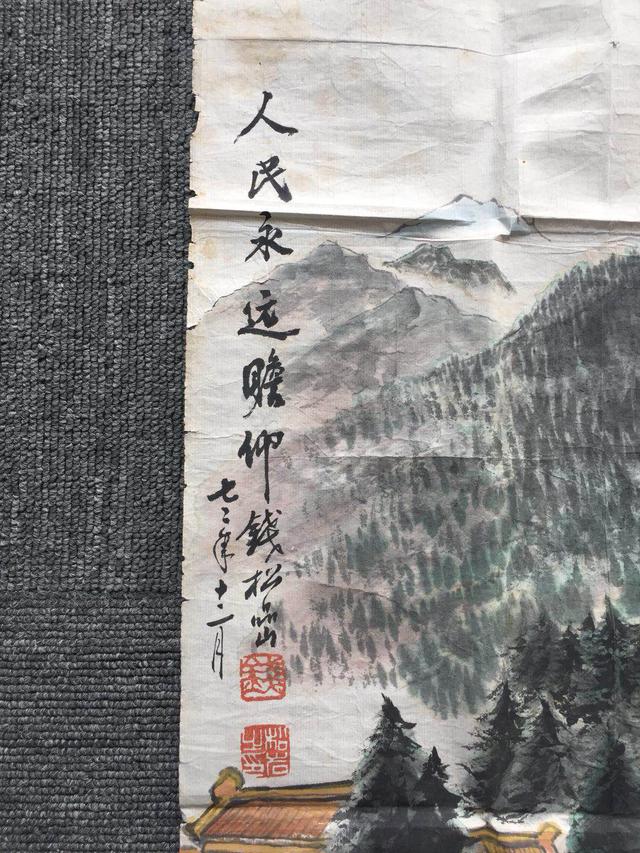 人民永远瞻仰錢松喦
七二年十二月